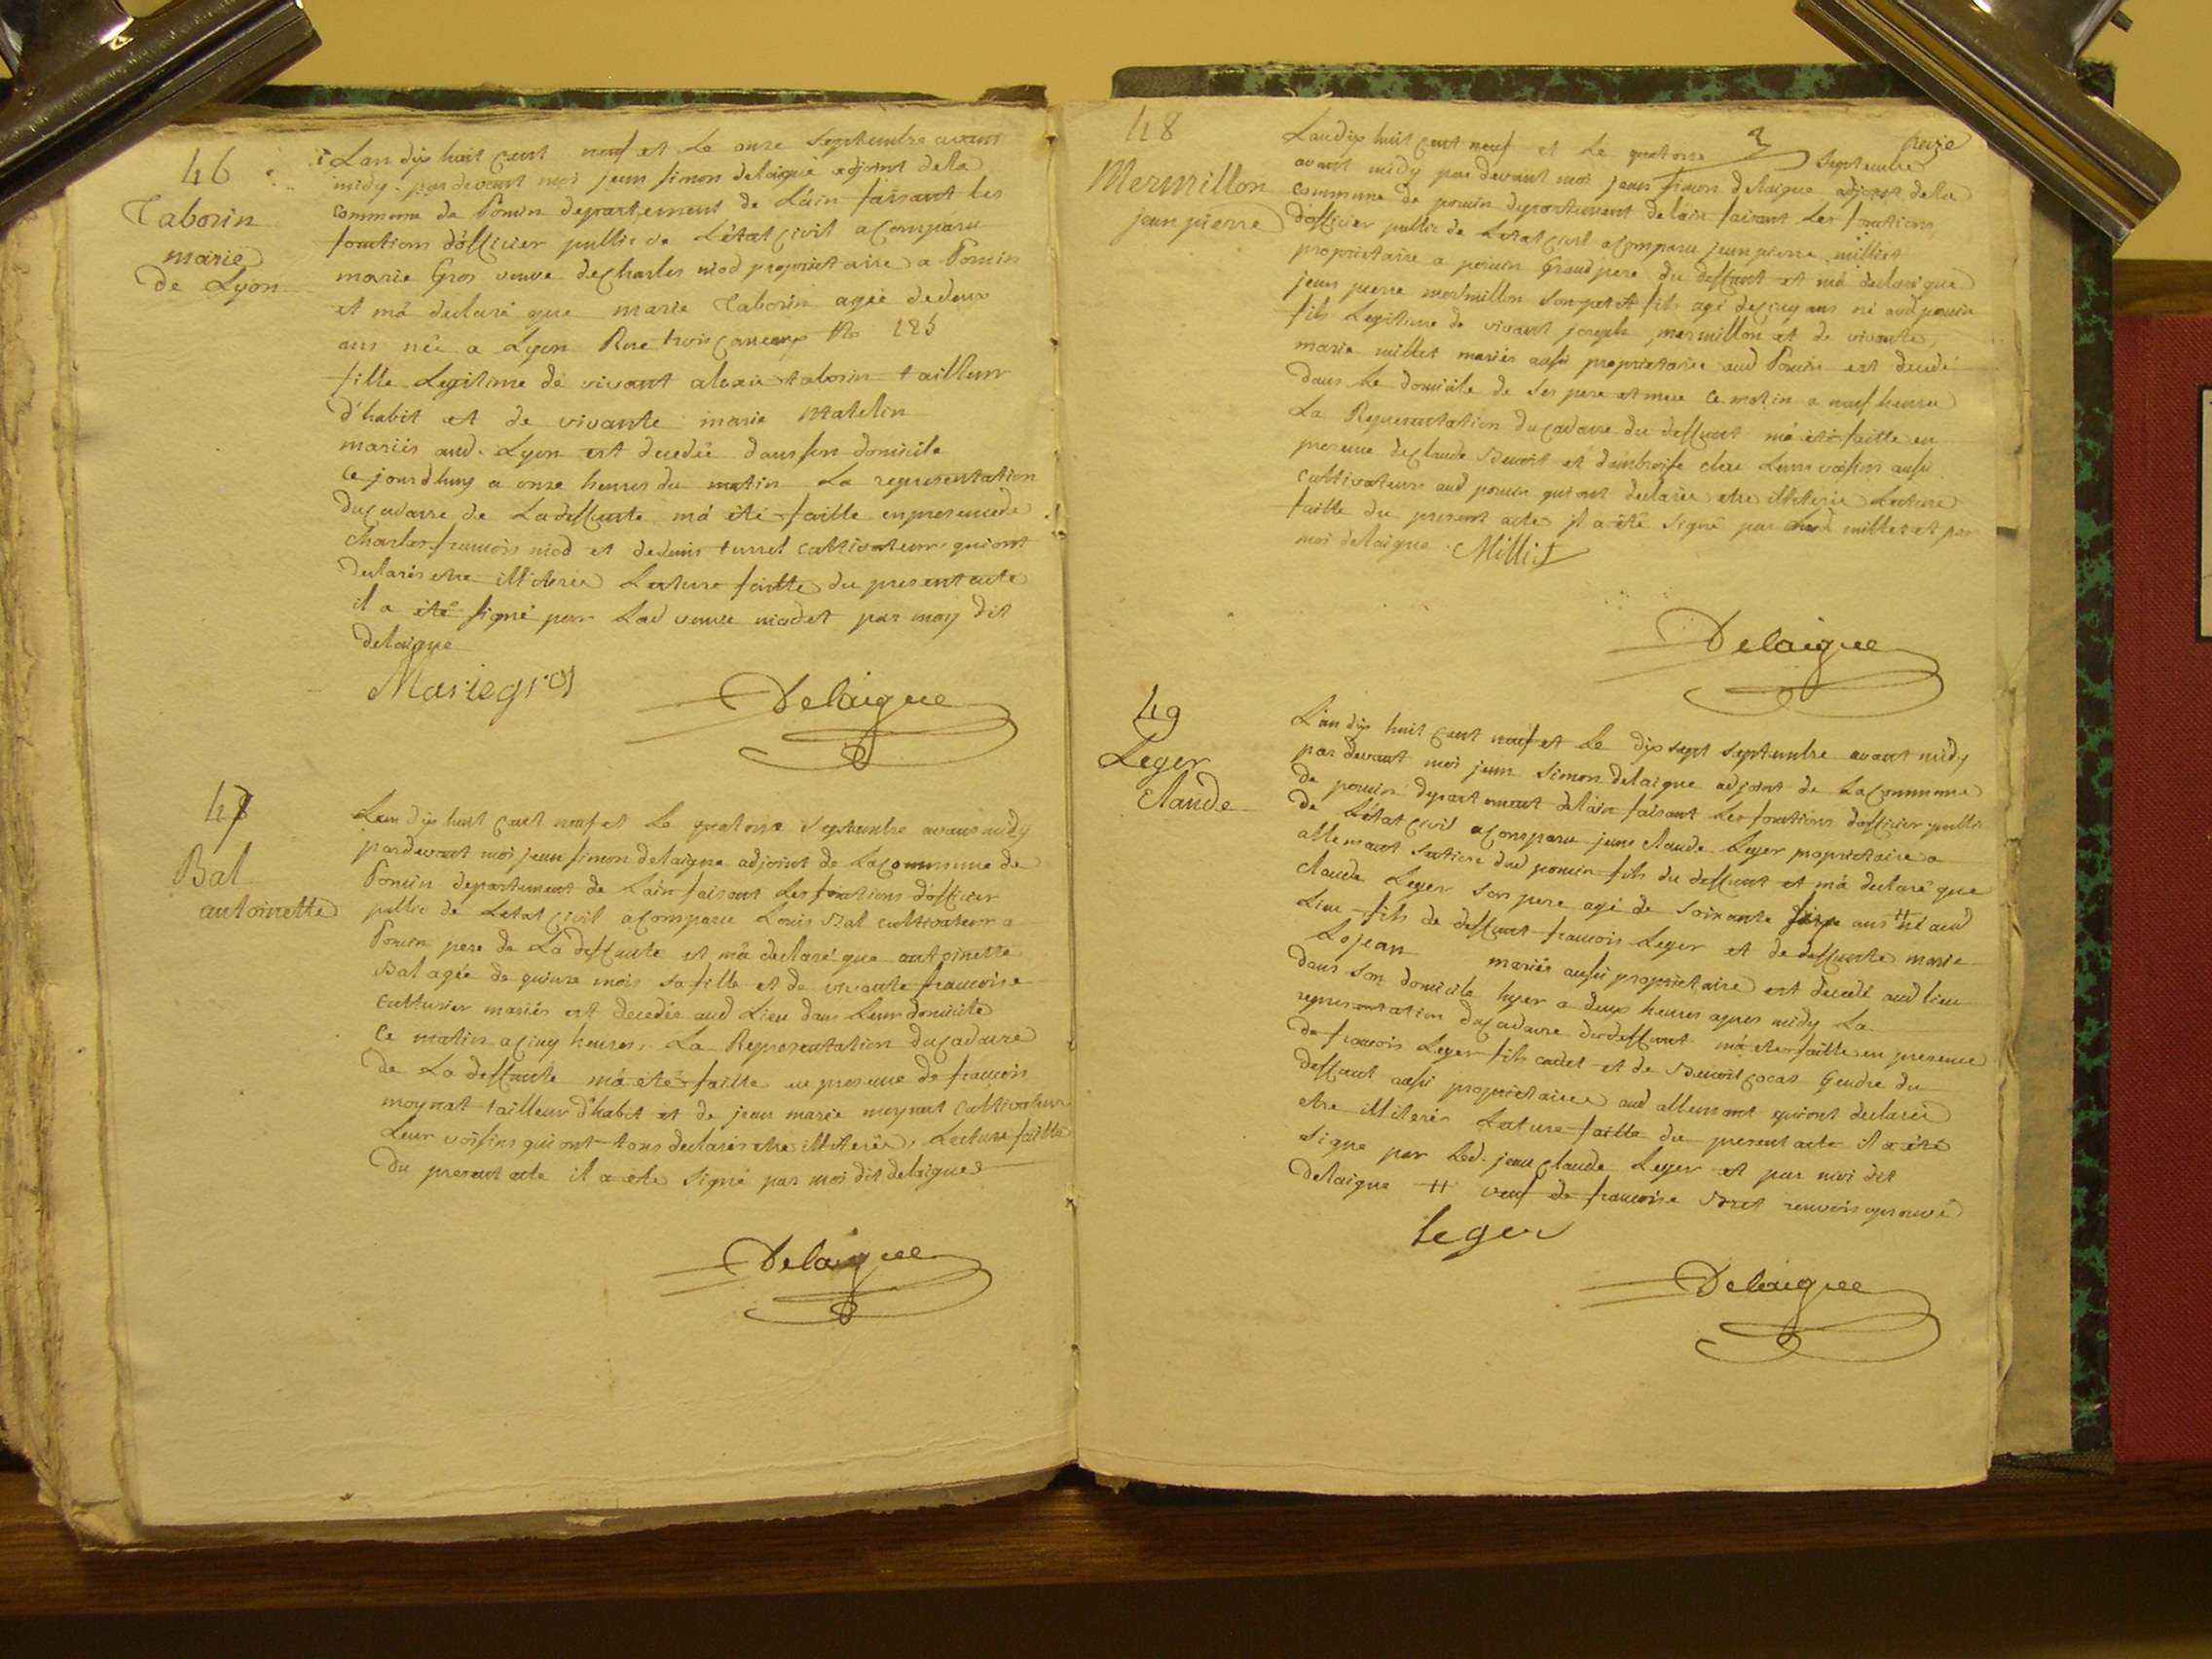 46
Taborin
marie
de Lyon
Lan dix huit cent neuf et le onze Septembre avant
midy par devant moi jean simon delaigue adjoint de la
commune de Pouin departement de L'ain faisant les
fonctions d'officier public de L'état civil a comparu
marie Gros veuve de charles niod proprietaire a Pouin
et m'a declaré que marie Taborin agée de deux
ans née a Lyon Rue trois carreaux No 125
fille Legitime de vivant alexis taborin tailleur
d'habit et de vivante marie Matelin
mariés aud. Lyon est decedée dans son domicile
ce jourd'huy a onze heures du matin La representation
du cadavre de La deffunte m'a été faitte en presence de
charles francois niod et de denis turrel cultivateurs qui ont
declarés etre illiterés Lecture faitte du present acte
il a été signé par Lad veuve niod et par moy dit
delaigue
Marie gros
Delaigue
47
Bal
antoinette
Lan dix huit cent neuf et le quatorze septembre avant midy
pardevant moi jean simon delaigue adjoint de La commune de
Pouin departement de L'ain faisant Les fonctions d'officier
public de Letat civil a comparu Louis Bal cultivateur a
Pouin pere de La deffunte et m'a declaré que antoinette
Bal agée de quinze mois sa fille et de vivante francoise
mariés est decedée aud Lieu dans Leur domicile
ce matin a cinq heures, La Representation du cadavre
de La deffunte m'a été faitte en presence de francois
moynat tailleur d'habit et de jean marie moynat cultivateur
Leur voisins qui ont tous declarés etre illiterés, Lecture faitte
du present acte il a été signé par moi dit delaigue
Delaigue
48
Mermillon
jean pierre
treize
Lan dix huit cent neuf et le quatorze Septembre
avant midy par devant moi jean simon delaigue adjoint de la
commune de pouin departement de lain faisant Les fonctions
d'officier public de Letat civil a comparu jean pierre milliet
proprietaire a pouin Grand pere du deffunt et m'a declaré que
jean pierre mermillon son petit fils agé de cinq ans né aud pouin
fils Legitime de vivant joseph mermillon et de vivante
marie millet mariés aussi proprietaire aud Pouin est decedé
dans Le domicile de ses pere et mere ce matin a neuf heures
La Representation du cadavre du deffunt m'a été faitte en
presence de claude Benoit et d'ambroise clerc Leurs voisins aussi
cultivateurs aud pouin qui ont declarés etre illiterés Lecture
faitte du present acte il a été signé par Led millet et par
moi delaigue. Milliet
Delaigue
49
Leger
Claude
L'an dix huit cent neuf et Le dix sept septembre avant midy
par devant moi jean simon delaigue adjoint de La commune
de pouin departement de lain faisant Les fonctions d'officier public
de L'état civil a comparu jean claude Leger proprietaire a
allemant section dud pouin fils du deffunt et m'a declaré que
claude Leger son pere agé de soixante ans # né aud
Lieu fils de deffunt francois Leger et de deffunte marie
Lojean mariés aussi proprietaire est decedé aud lieu
dans son domicile hyer a deux heures apres midy La
representation du cadavre dud deffunt m'a été faitte en presence
de francois Leger fils cadet et de Benoit cocat Gendre du
deffunt aussi proprietaires aud allemant qui ont declarés
etre illiterés Lecture faitte du present acte il a été
signe par Led. jean claude Leger et par moi dit
delaigue # veuf de francoise Bret renvois aprouvé
leger
Delaigue